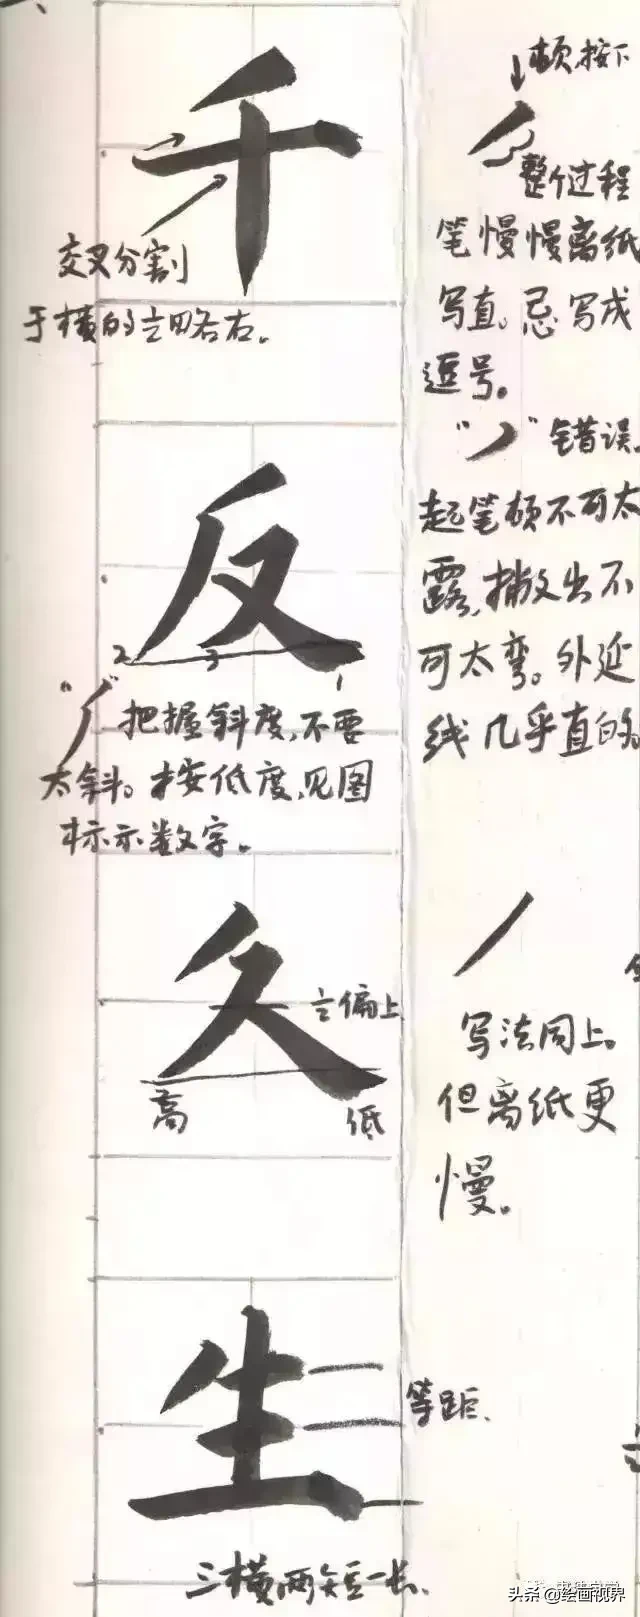 千
交叉分割
于横的六略右。
顿按下
整个过程
笔慢慢离纸
写直。忌写成
逗号。
"丿"错误。
起笔顿不可太
露,撇出不
可太弯。外延
线几乎直的。
反
2 3 1
把握斜度,不要
太斜。按低度,见图
标示数字。
久
偏上
高 低
写法同上。
但离纸更
慢。
生
等距、
三横两短一长、
头条@绘画视界